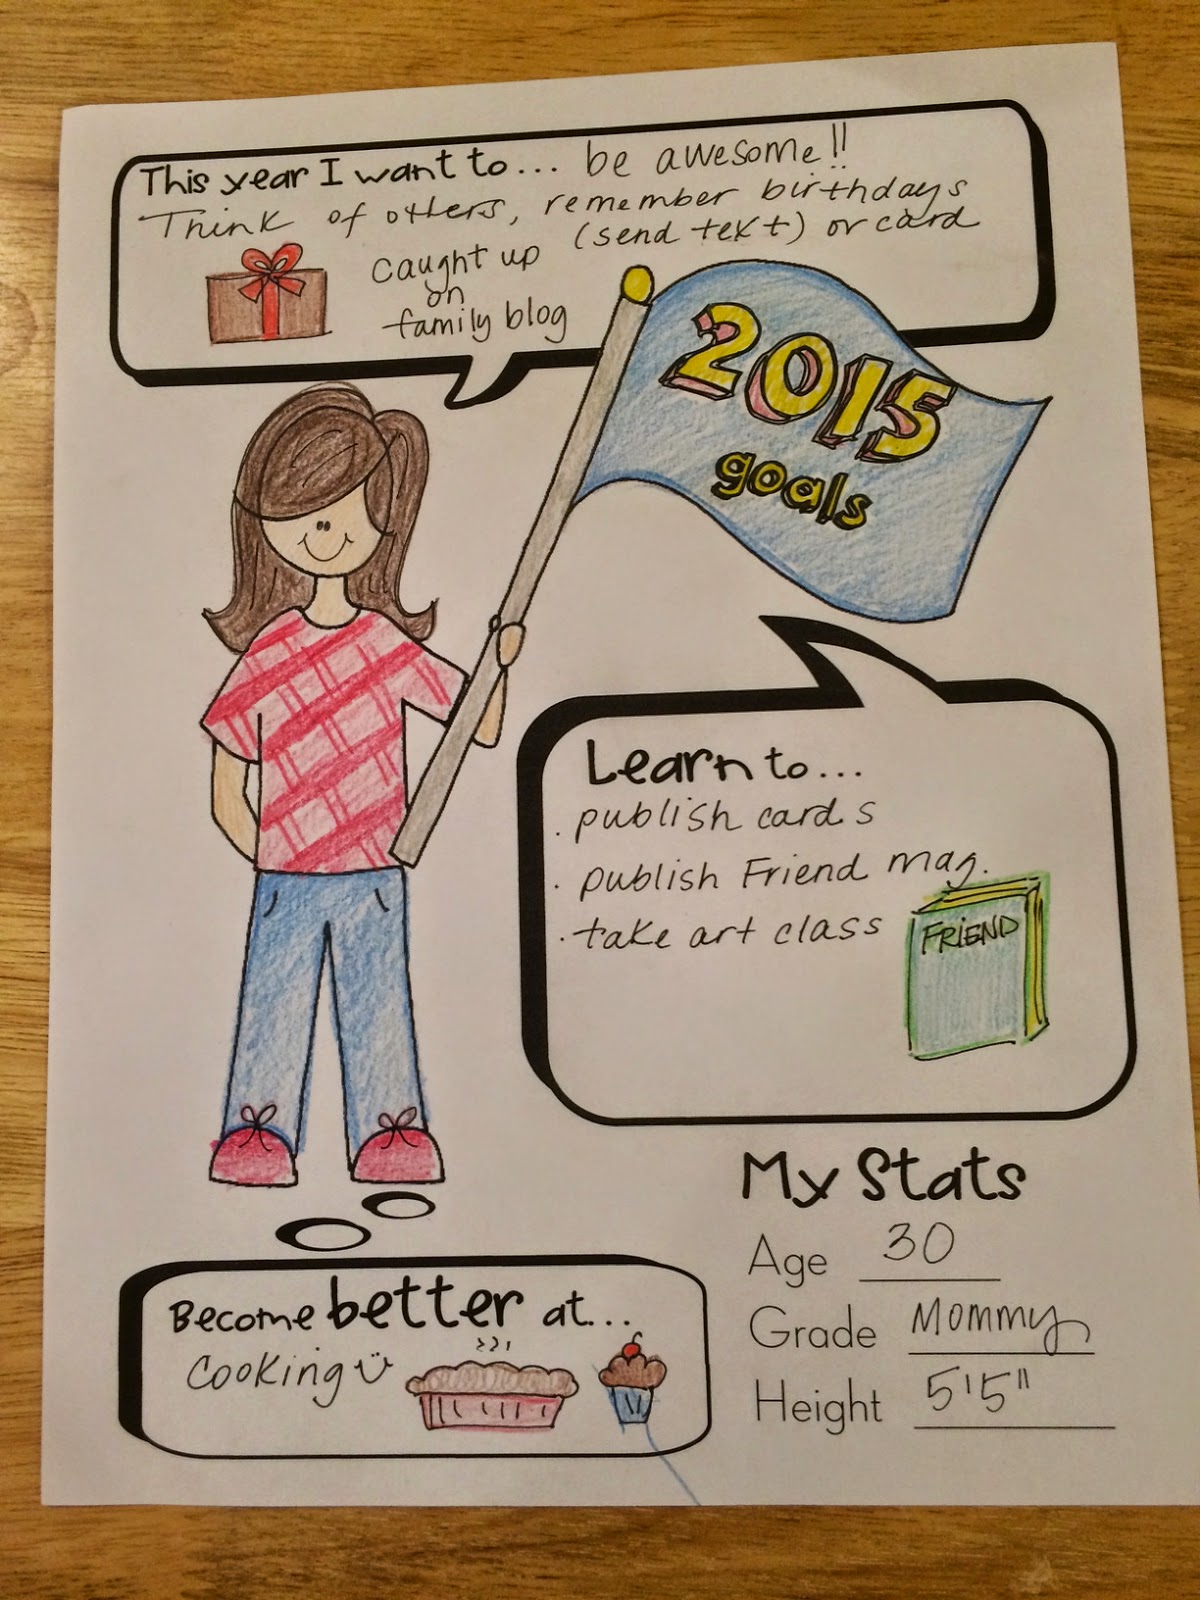 This year I want to... be awesome!!
Think of others, remember birthdays
(send text) or card
caught up
on
family blog
2015
goals
Learn to...
. publish cards
. publish Friend mag.
. take art class
FRIEND
My Stats
Age 30
Grade Mommy
Height 5'5"
Become better at...
cooking